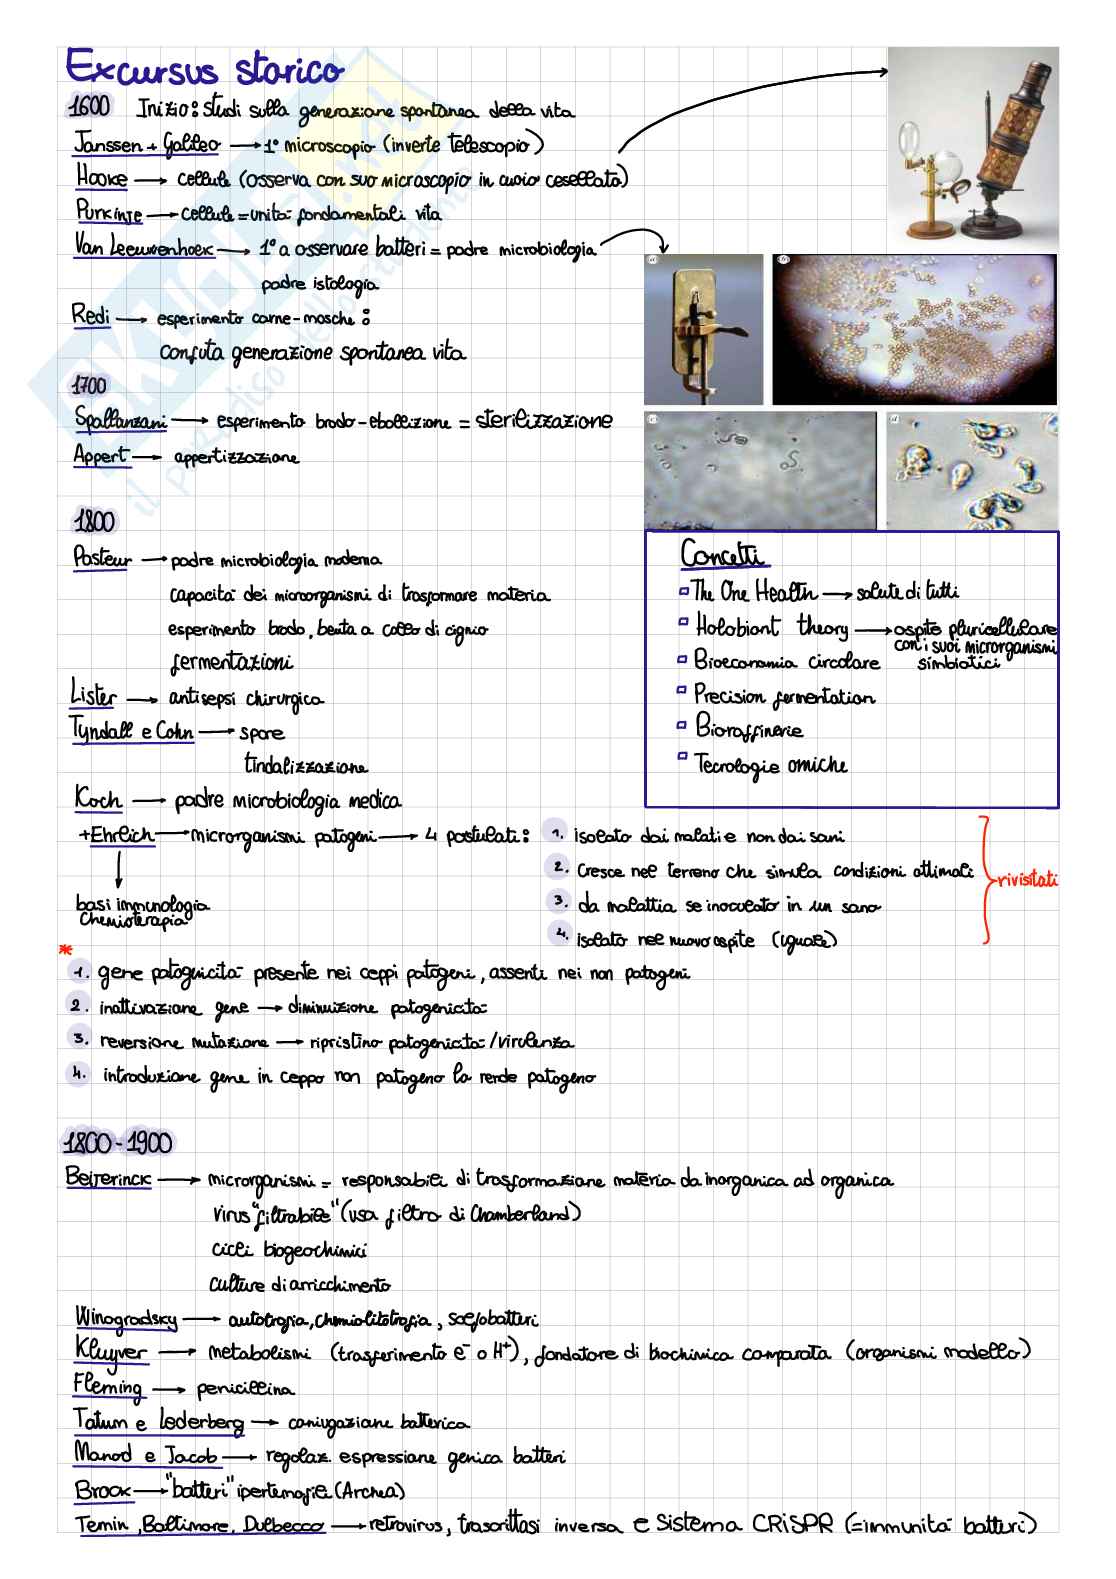 Excursus storico
1600 Inizio: studi sulla generazione spontanea della vita
Janssen + Galileo → 1° microscopio (inverte telescopio)
Hooke → cellule (osserva con suo microscopio in cuoio cesellato)
Purkinje → cellule = unità fondamentali vita
Van Leeuwenhoek → 1° a osservare batteri = padre microbiologia
padre istologia
Redi → esperimento carne-mosche:
confuta generazione spontanea vita
1700
Spallanzani → esperimento brodo-ebollizione = sterilizzazione
Appert → appertizzazione
1800
Pasteur → padre microbiologia moderna
capacità dei microorganismi di trasformare materia
esperimento brodo, beuta a collo di cignio
fermentazioni
Lister → antisepsi chirurgica
Tyndall e Cohn → spore
tindalizzazione
Koch → padre microbiologia medica
+Ehrlich → microrganismi patogeni → 4 postulati:
basi immunologia
Chemioterapia
1. isolato dai malati e non dai sani
2. Cresce nel terreno che simula condizioni ottimali
3. da malattia se inoculato in un sano
4. isolato nel nuovo ospite (uguale)
rivisitati
Concetti
The One Health → salute di tutti
Holobiont theory → ospite pluricellulare
con i suoi microrganismi
simbiotici
Bioeconomia circolare
Precision fermentation
Bioraffinerie
Tecnologie omiche
*
1. gene patogenicità presente nei ceppi patogeni, assenti nei non patogeni
2. inattivazione gene → diminuizione patogenicità
3. reversione mutazione → ripristino patogenicità/virulenza
4. introduzione gene in ceppo non patogeno lo rende patogeno
1800-1900
Beijerinck → microrganismi = responsabili di trasformazione materia da inorganica ad organica
virus "filtrabile" (usa filtro di Chamberland)
cicli biogeochimici
culture di arricchimento
Winogradsky → autotrofia, chemiolitotrofia, solfobatteri
Kluyver → metabolismi (trasferimento e⁻ o H⁺), fondatore di biochimica comparata (organismi modello)
Fleming → penicillina
Tatum e Lederberg → coniugazione batterica
Monod e Jacob → regolaz. espressione genica batteri
Brock → "batteri" ipertermofili (Archea)
Temin, Baltimore, Dulbecco → retrovirus, trascrittasi inversa e Sistema CRiSPR (=immunità batteri)